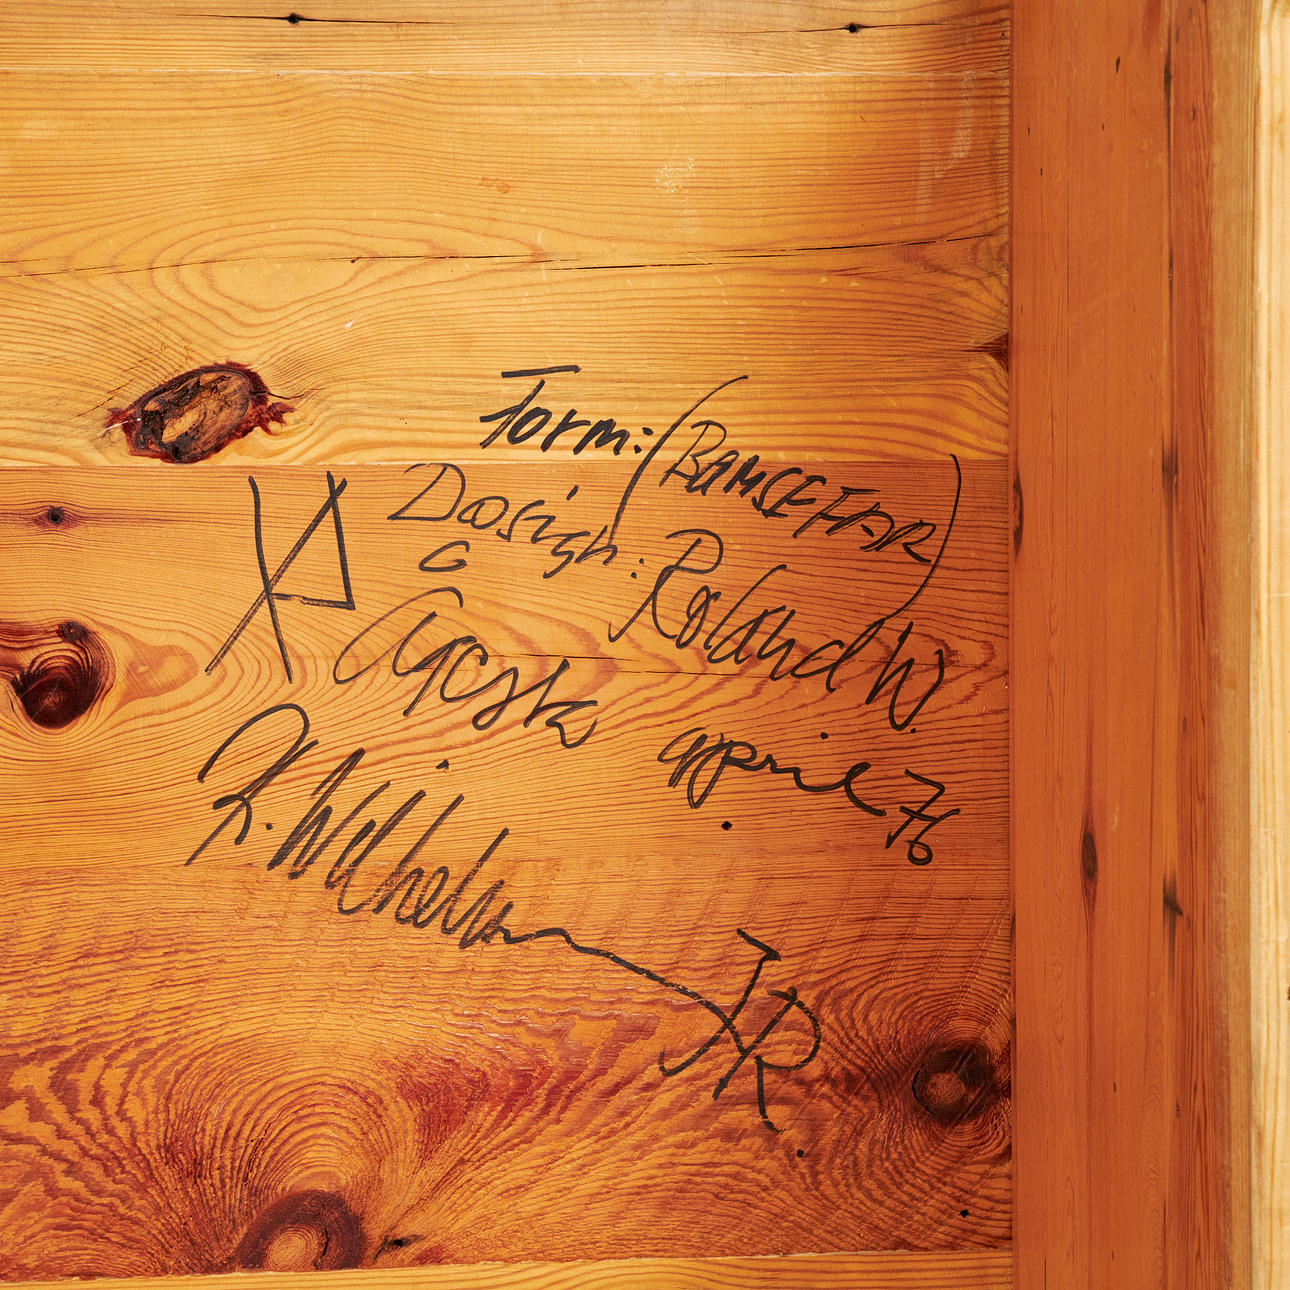 Form: (BAMSEFAR)
Design: Roland W.
april 76
R. Wilhelmsson JR.